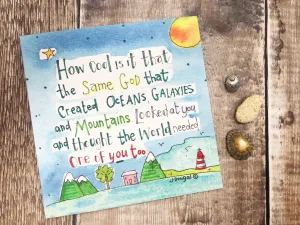 How Cool is it that
the Same God that
Created OCEANS, GALAXIES
and Mountains Looked at you
and thought the World needed
one of you too